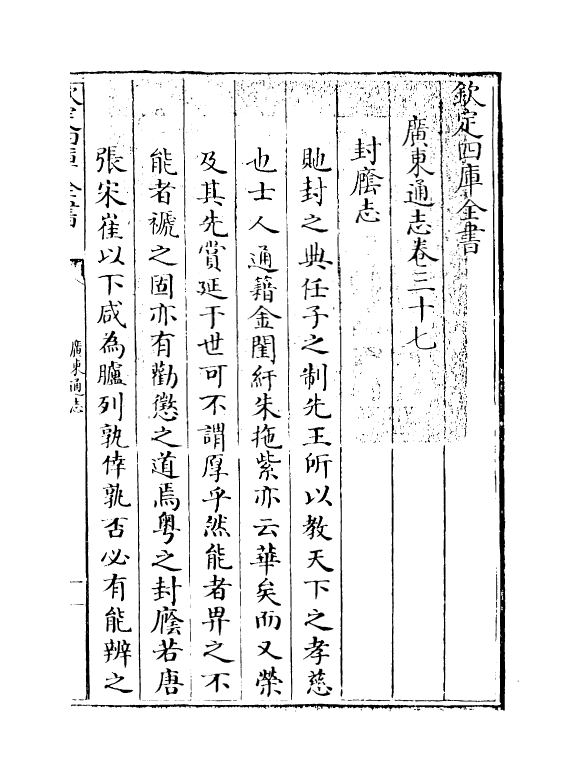 欽定四庫全書
廣東通志卷三十七
封廕志
貤封之典任子之制先王所以教天下之孝慈
也士人通籍金閨紆朱拖紫亦云華矣而又榮
及其先賞延于世可不謂厚乎然能者畀之不
能者褫之固亦有勸懲之道焉粤之封廕若唐
張宋崔以下咸為臚列孰倖孰否必有能辨之
欽定四庫全書
廣東通志